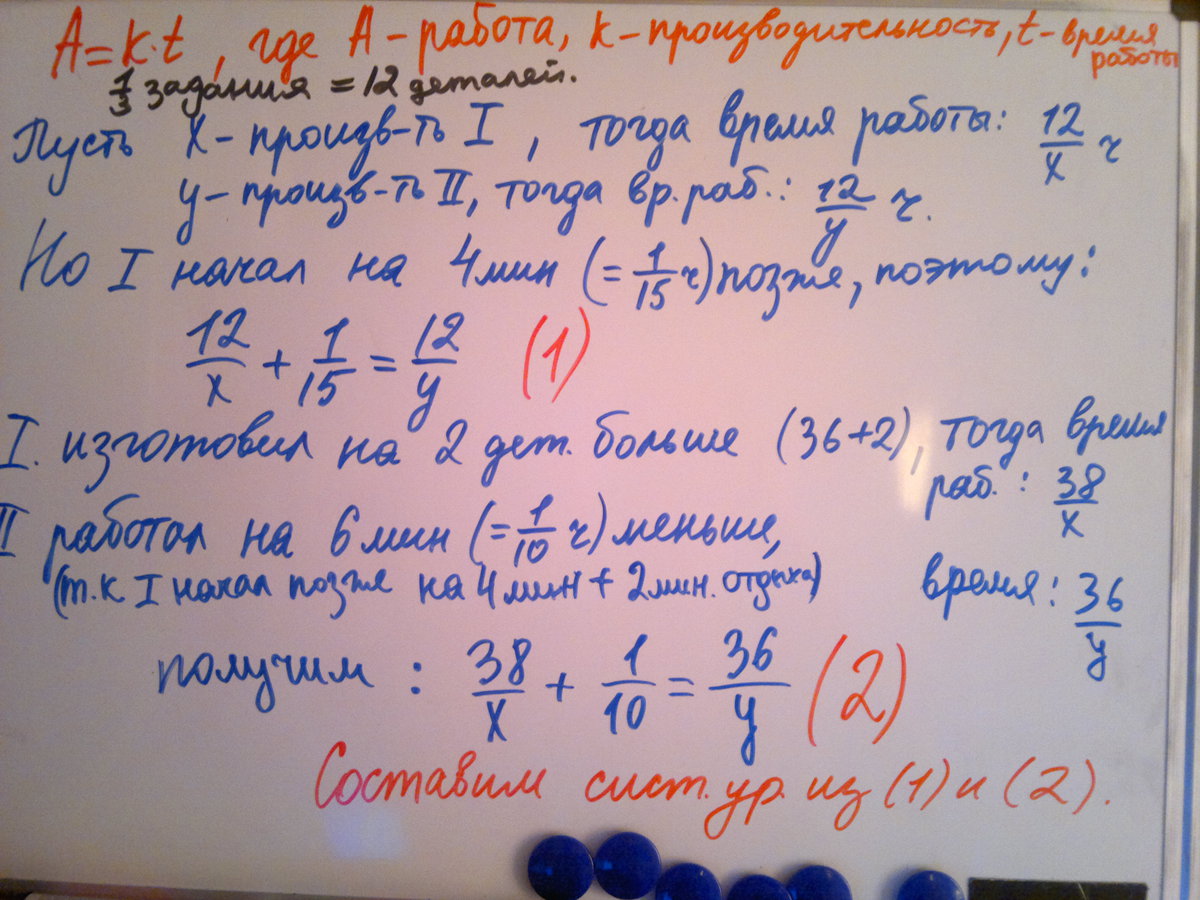 A = k·t, где A – работа, k – производительность, t – время работы
1/3 задания = 12 деталей.
Пусть x – произв-ть I, тогда время работы: 12/x ч
y – произв-ть II, тогда вр. раб.: 12/y ч.
Но I начал на 4 мин (= 1/15 ч) позже, поэтому:
12/x + 1/15 = 12/y (1)
I. изготовил на 2 дет. больше (36+2), тогда время раб.: 38/x
II работал на 6 мин (= 1/10 ч) меньше,
(т.к. I начал позже на 4 мин + 2 мин. отдыха) время: 36/y
получим: 38/x + 1/10 = 36/y (2)
Составим сист. ур. из (1) и (2).